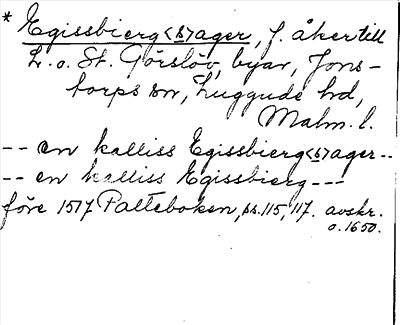 * Egissbierg<s>ager, f. åker till
L. o. St. Görslöv, byar, Jons-
torps sn, Luggude hd,
Malm. l.
-- en kalliss Egissbierg<s>ager--
-- en kalliss Egissbierg---
före 1517 Palteboken, ss. 115, 117. avskr.
o. 1650.